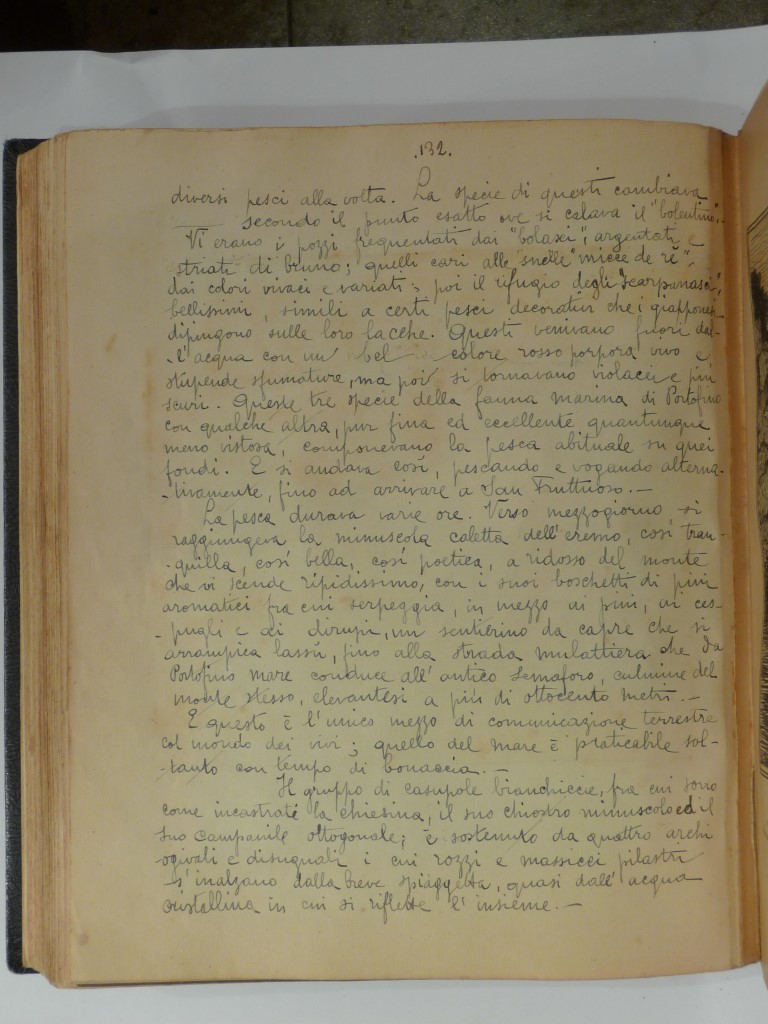 .132.
diversi pesci alla volta. La specie di questi cambiava
secondo il punto esatto ove si calava il "bolentino".
Vi erano i pozzi frequentati dai "bolaxi", argentati e
striati di bruno; quelli cari alle snelle "micce de rê",
dai colori vivaci e variati; poi il rifugio degli "scarpanasci",
bellissimi, simili a certi pesci decorativi che i giapponesi
dipingono sulle loro lacche. Questi venivano fuori dal-
-l'acqua con un bel colore rosso porpora vivo e
stupende sfumature, ma poi si tornavano violacei e più
scuri. Queste tre specie della fauna marina di Portofino
con qualche altra, pur fina ed eccellente quantunque
meno vistosa, componevano la pesca abituale su quei
fondi. E si andava così, pescando e vogando alterna-
-tivamente, fino ad arrivare a San Fruttuoso.-
La pesca durava varie ore. Verso mezzogiorno si
raggiungeva la minuscola caletta dell'eremo, così tran-
-quilla, così bella, così poetica, a ridosso del monte
che vi scende ripidissimo, con i suoi boschetti di pini
aromatici fra cui serpeggia, in mezzo ai pini, ai ces-
-pugli e ai dirupi, un sentierino da capre che si
arrampica lassù, fino alla strada mulattiera che da
Portofino mare conduce all'antico Semaforo, culmine del
monte stesso, elevantesi a più di ottocento metri.-
E questo è l'unico mezzo di comunicazione terrestre
col mondo dei vivi; quello del mare è praticabile sol-
-tanto con tempo di bonaccia.-
Il gruppo di casupole bianchiccie, fra cui sono
come incastrate la chiesina, il suo chiostro minuscolo ed il
suo campanile ottogonale; è sostenuto da quattro archi
ogivali e disuguali i cui rozzi e massicci pilastri
s'inalzano dalla breve spiaggetta, quasi dall'acqua
cristallina in cui si riflette l'insieme.-